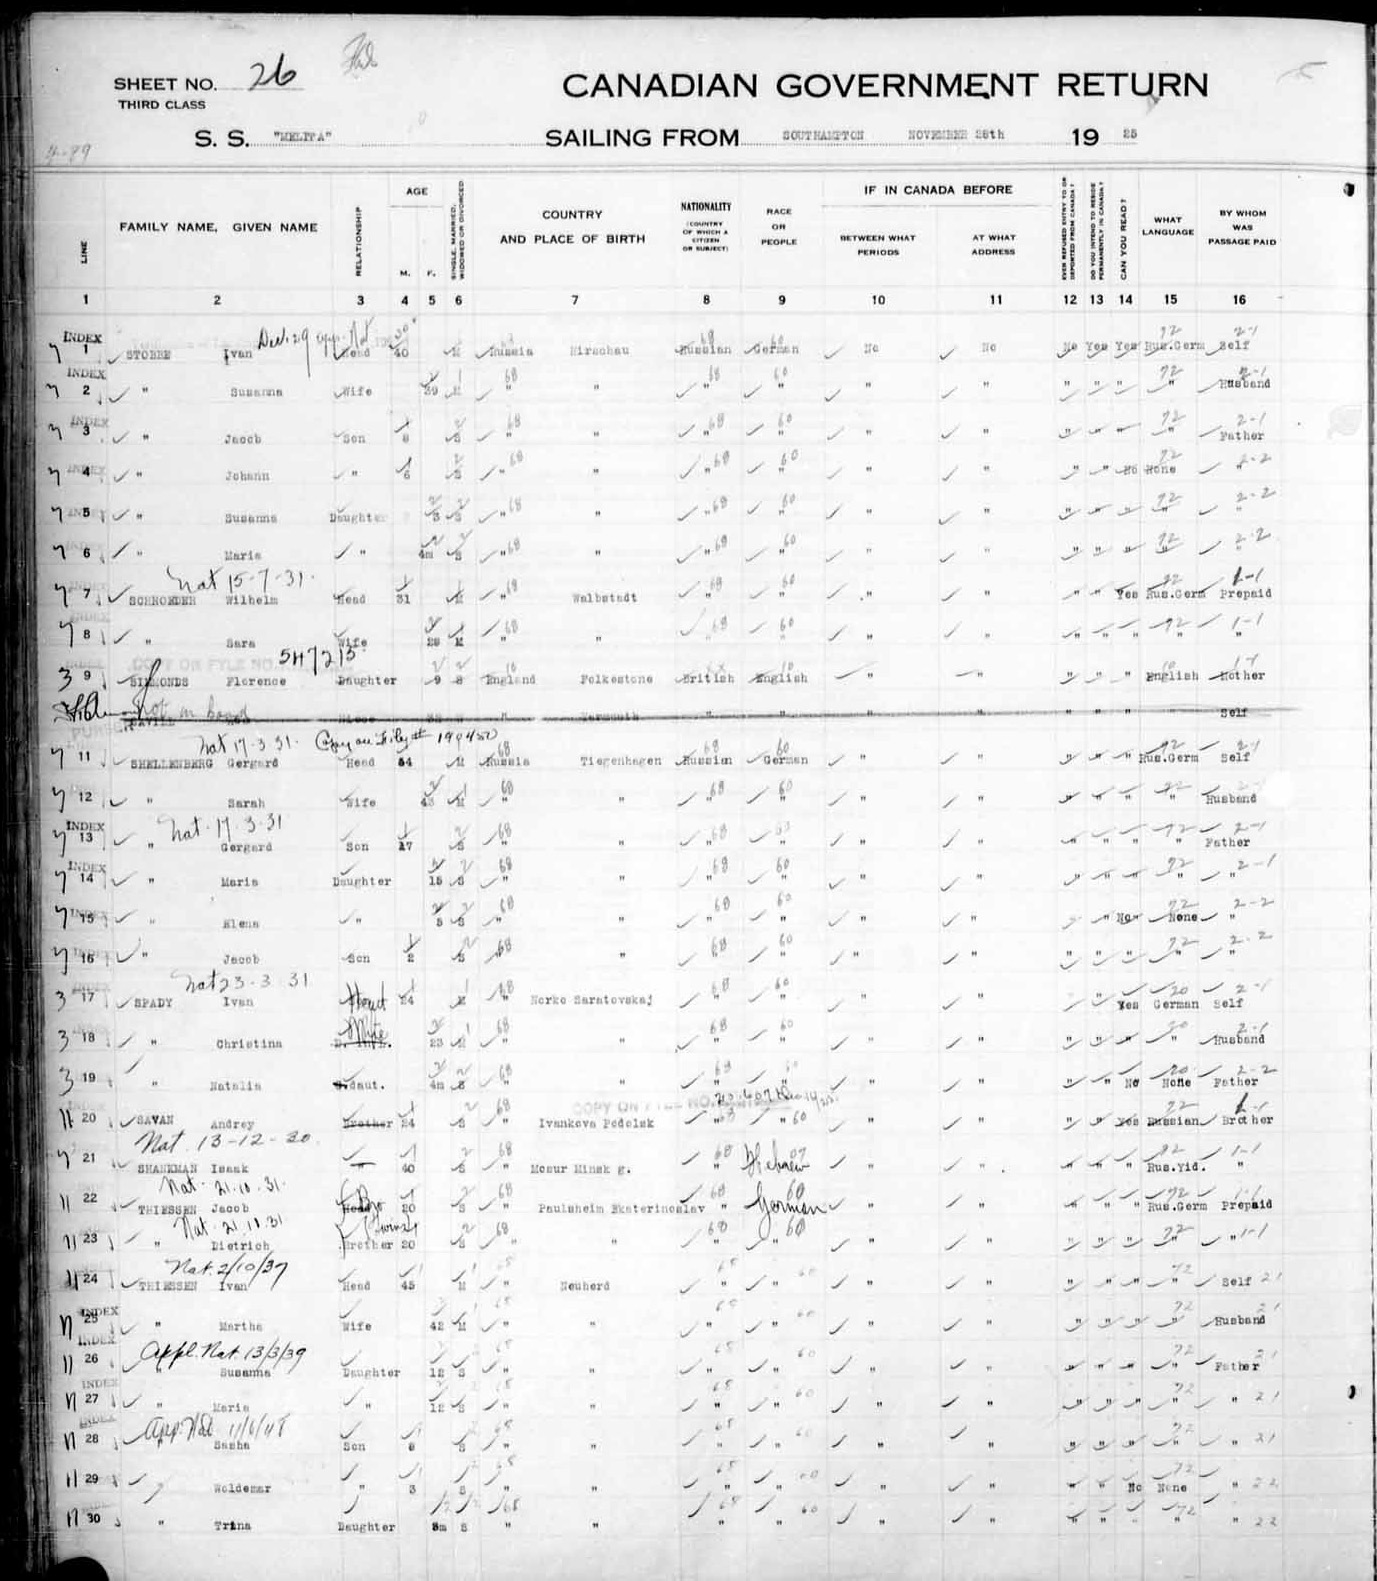 SHEET NO. 26
THIRD CLASS
CANADIAN GOVERNMENT RETURN
S. S. "MELITA" SAILING FROM SOUTHAMPTON NOVEMBER 28th 19 25
LINE FAMILY NAME, GIVEN NAME RELATIONSHIP AGE M. F. SINGLE, MARRIED, WIDOWED OR DIVORCED COUNTRY AND PLACE OF BIRTH NATIONALITY (COUNTRY OF WHICH A CITIZEN OR SUBJECT) RACE OR PEOPLE IF IN CANADA BEFORE BETWEEN WHAT PERIODS AT WHAT ADDRESS EVER REFUSED ENTRY TO OR DEPORTED FROM CANADA? DO YOU INTEND TO RESIDE PERMANENTLY IN CANADA? CAN YOU READ? WHAT LANGUAGE BY WHOM WAS PASSAGE PAID
1 2 3 4 5 6 7 8 9 10 11 12 13 14 15 16
INDEX
1 STOBBE Ivan Head 40 M Russia Hirschau Russian German No No No Yes Yes Rus.Germ Self
INDEX
2 " Susanna Wife 39 M " " " " " " " " " " Husband
INDEX
3 " Jacob Son 8 S " " " " " " " " " " Father
4 " Johann " 6 S " " " " " " " " No None "
5 " Susanna Daughter 3 S " " " " " " " " " " "
6 " Maria " 4m S " " " " " " " " " " "
Nat 15-7-31.
7 SCHROEDER Wilhelm Head 31 M " Walbstadt " " " " " " Yes Rus.Germ Prepaid
8 " Sara Wife 28 M " " " " " " " " " " "
COPY ON FYLE NO. 547213
9 SIMMONDS Florence Daughter 9 S England Folkestone British English " " " " " English Mother
Not on board
Niece " Yarmouth " " " " " " " Self
Nat 17-3-31. Copy on File # 199450
11 SHELLENBERG Gergard Head 54 M Russia Tiegenhagen Russian German " " " " " Rus.Germ Self
12 " Sarah Wife 43 M " " " " " " " " " " Husband
INDEX Nat. 17.3.31
13 " Gergard Son 17 S " " " " " " " " " " Father
INDEX
14 " Maria Daughter 15 S " " " " " " " " " " "
15 " Elena " 5 S " " " " " " " No None "
16 " Jacob Son 2 S " " " " " " " " " " "
Nat 23-3-31
17 SPADY Ivan Head 24 M " Norko Saratovskaj " " " " " " Yes German Self
18 " Christina Wife 23 M " " " " " " " " " " Husband
19 " Natalia D.daut. 4m S " " " " " " " " No None Father
COPY ON FYLE NO.
20 SAVAN Andrey Brother 24 S " Ivankova Podolsk " " " " " " Yes Russian Brother
Nat. 13-12-30.
21 SHANKMAN Isaak 40 S " Mosur Minsk g. " Hebrew " " " " " Rus.Yid. "
Nat. 21.10.31.
22 THIESSEN Jacob Head Bro 20 S " Paulsheim Ekaterinoslav " German " " " " " Rus.Germ Prepaid
Nat. 21.10.31 (Twins)
23 " Dietrich Brother 20 S " " " " " " " " " " "
Nat. 2/10/37
24 THIESSEN Ivan Head 45 M " Neuherd " " " " " " " " Self
INDEX
25 " Martha Wife 42 M " " " " " " " " " " Husband
INDEX Appl. Nat. 13/3/39
26 " Susanna Daughter 12 S " " " " " " " " " " Father
INDEX
27 " Maria " 12 S " " " " " " " " " " "
INDEX App. Nat 11/6/48
28 " Sasha Son 8 S " " " " " " " " " " "
29 " Woldemar " 3 S " " " " " " " " No None "
30 " Trina Daughter 8m S " " " " " " " " " " "